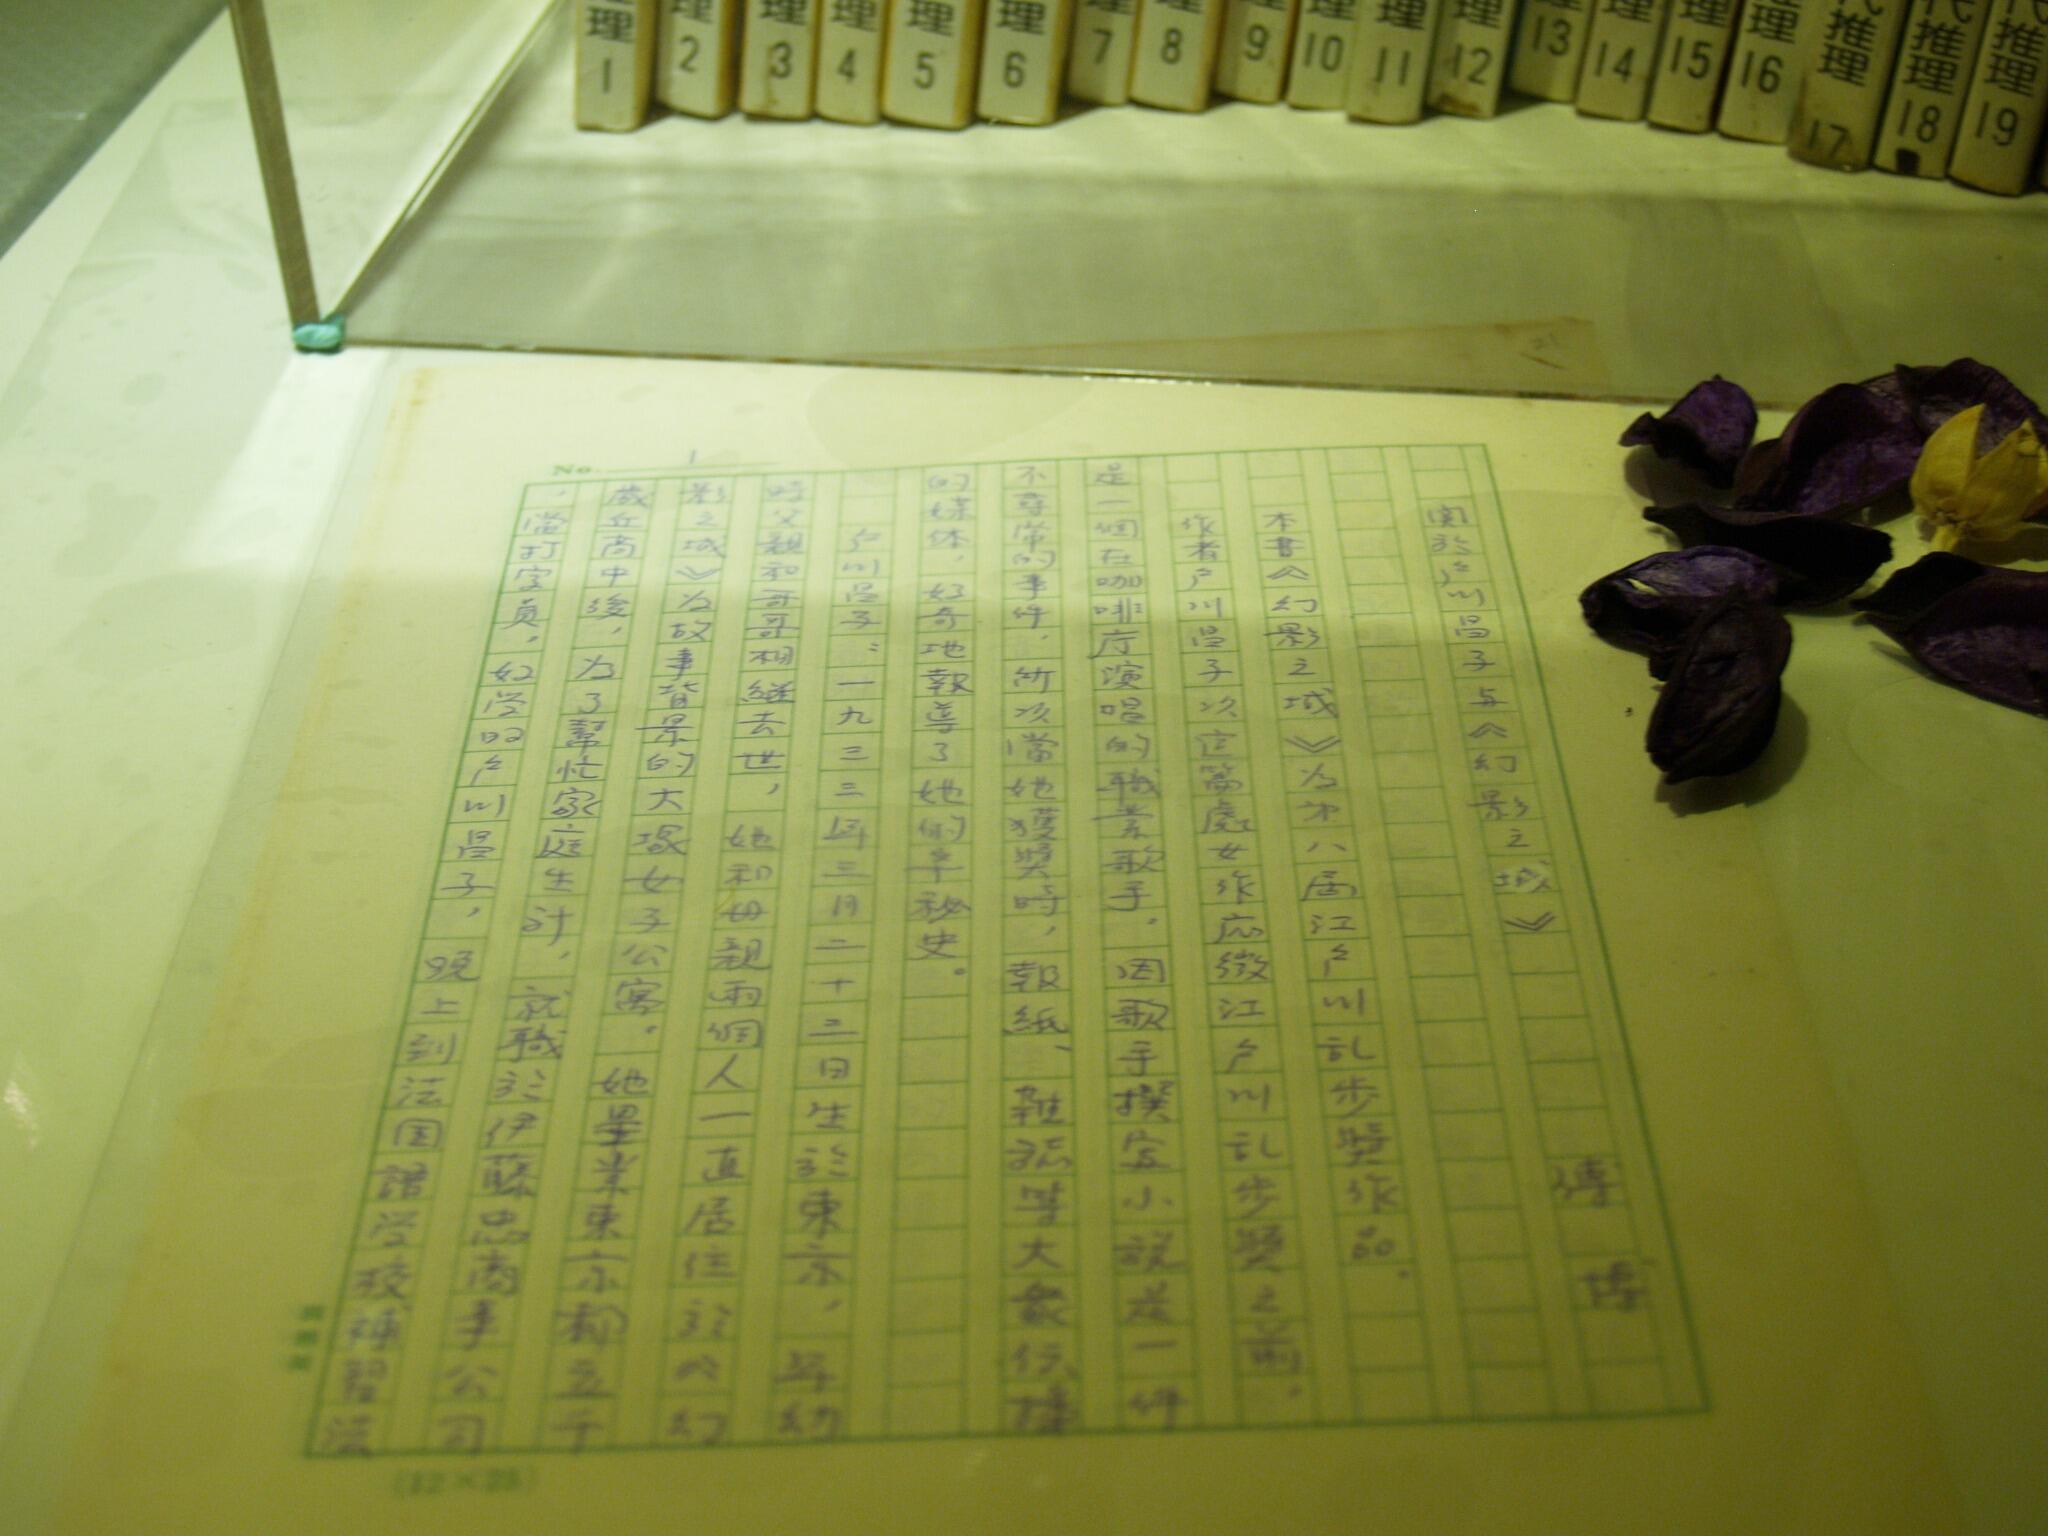 理1
理2
理3
理4
理5
理6
理7
理8
理9
理10
理11
理12
理13
理14
理15
推理16
代推理17
代推理18
代推理19
No. 1
関於户川昌子与《幻影之城》
傅 博
本書《幻影之城》为第八届江户川乱步奬作品。
作者户川昌子次這篇處女作応徵江户川乱步奬之前,
是一個在咖啡庁演唱的職業歌手。因歌手撰写小說是一件
不尋常的事件,所以當她獲奬時,報紙、雜誌等大衆传播
的媒体,好奇地報導了她的辛秘史。
户川昌子:一九三三年三月二十三日生於東京,年幼
時父親和哥哥相継去世,她和母親兩個人一直居住於《幻
影之城》为故事背景的大塚女子公寓。她畢業東京都立千
歲丘高中後,为了幫忙家庭生計,就職於伊藤忠商事公司
,當打字員。好学的户川昌子,晚上到法国語学校補習法
(12×25)